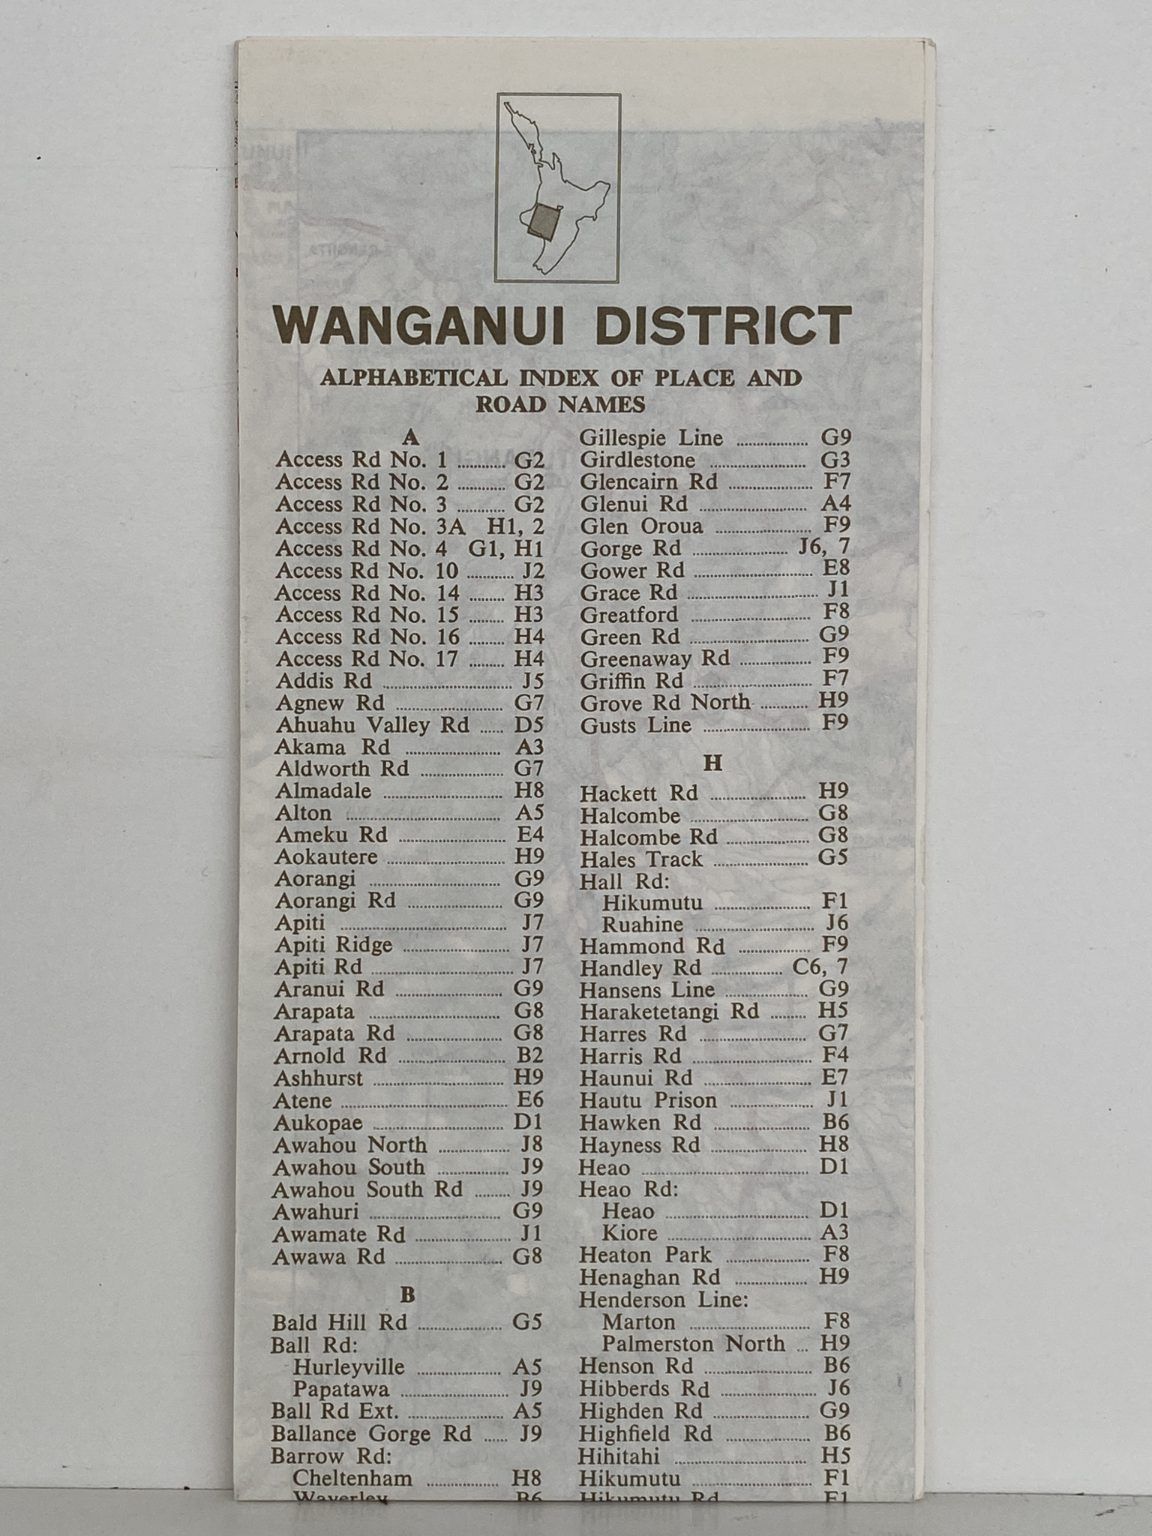 WANGANUI DISTRICT
ALPHABETICAL INDEX OF PLACE AND
ROAD NAMES
A
Access Rd No. 1 .......... G2
Access Rd No. 2 .......... G2
Access Rd No. 3 .......... G2
Access Rd No. 3A H1, 2
Access Rd No. 4 G1, H1
Access Rd No. 10 .......... J2
Access Rd No. 14 .......... H3
Access Rd No. 15 .......... H3
Access Rd No. 16 .......... H4
Access Rd No. 17 .......... H4
Addis Rd .......... J5
Agnew Rd .......... G7
Ahuahu Valley Rd ...... D5
Akama Rd .......... A3
Aldworth Rd .......... G7
Almadale .......... H8
Alton .......... A5
Ameku Rd .......... E4
Aokautere .......... H9
Aorangi .......... G9
Aorangi Rd .......... G9
Apiti .......... J7
Apiti Ridge .......... J7
Apiti Rd .......... J7
Aranui Rd .......... G9
Arapata .......... G8
Arapata Rd .......... G8
Arnold Rd .......... B2
Ashhurst .......... H9
Atene .......... E6
Aukopae .......... D1
Awahou North .......... J8
Awahou South .......... J9
Awahou South Rd ........ J9
Awahuri .......... G9
Awamate Rd .......... J1
Awawa Rd .......... G8
B
Bald Hill Rd .......... G5
Ball Rd:
Hurleyville .......... A5
Papatawa .......... J9
Ball Rd Ext. .......... A5
Ballance Gorge Rd ...... J9
Barrow Rd:
Cheltenham .......... H8
Waverley B6
Gillespie Line .......... G9
Girdlestone .......... G3
Glencairn Rd .......... F7
Glenui Rd .......... A4
Glen Oroua .......... F9
Gorge Rd .......... J6, 7
Gower Rd .......... E8
Grace Rd .......... J1
Greatford .......... F8
Green Rd .......... G9
Greenaway Rd .......... F9
Griffin Rd .......... F7
Grove Rd North .......... H9
Gusts Line .......... F9
H
Hackett Rd .......... H9
Halcombe .......... G8
Halcombe Rd .......... G8
Hales Track .......... G5
Hall Rd:
Hikumutu .......... F1
Ruahine .......... J6
Hammond Rd .......... F9
Handley Rd .......... C6, 7
Hansens Line .......... G9
Haraketetangi Rd ........ H5
Harres Rd .......... G7
Harris Rd .......... F4
Haunui Rd .......... E7
Hautu Prison .......... J1
Hawken Rd .......... B6
Hayness Rd .......... H8
Heao .......... D1
Heao Rd:
Heao .......... D1
Kiore .......... A3
Heaton Park .......... F8
Henaghan Rd .......... H9
Henderson Line:
Marton .......... F8
Palmerston North ... H9
Henson Rd .......... B6
Hibberds Rd .......... J6
Highden Rd .......... G9
Highfield Rd .......... B6
Hihitahi .......... H5
Hikumutu .......... F1
Hikumutu Rd F1